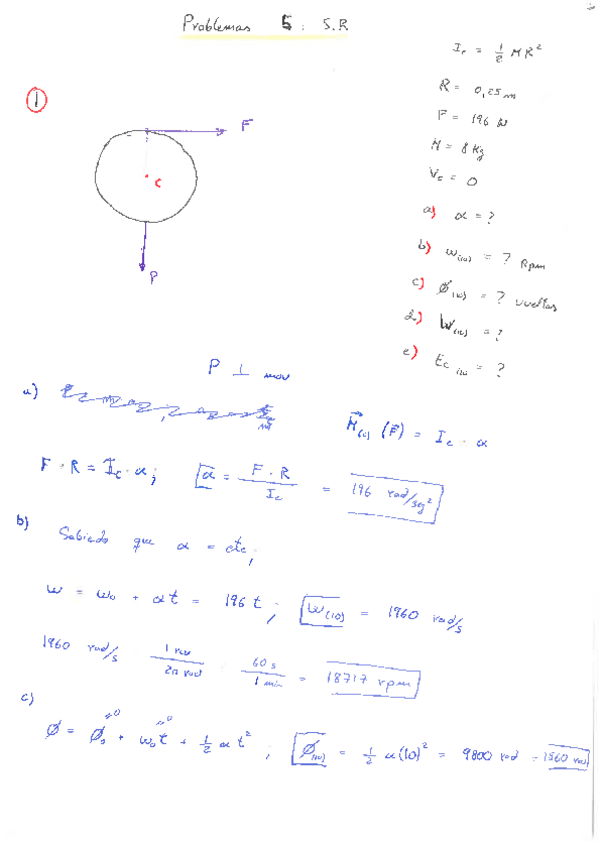 Problemas 5: S.R
I_c = 1/2 M R²
R = 0,25 m
F = 196 N
M = 8 Kg
V_c = 0
1
F
C
P
a) α = ?
b) ω(10) = ? Rpm
c) Ø(10) = ? vueltas
d) W(10) = ?
e) Ec (10) = ?
P ⊥ mov
a)
M(c) (F) = I_c · α
F · R = I_c · α; α = F · R / I_c = 196 rad/seg²
b)
Sabiendo que α = cte;
ω = ω₀ + αt = 196 t; ω(10) = 1960 rad/s
1960 rad/s · 1 rev / 2π rad · 60 s / 1 min = 18717 rpm
c)
Ø = Ø₀ + ω₀t + 1/2 α t²; Ø(10) = 1/2 α (10)² = 9800 rad = 1560 rev